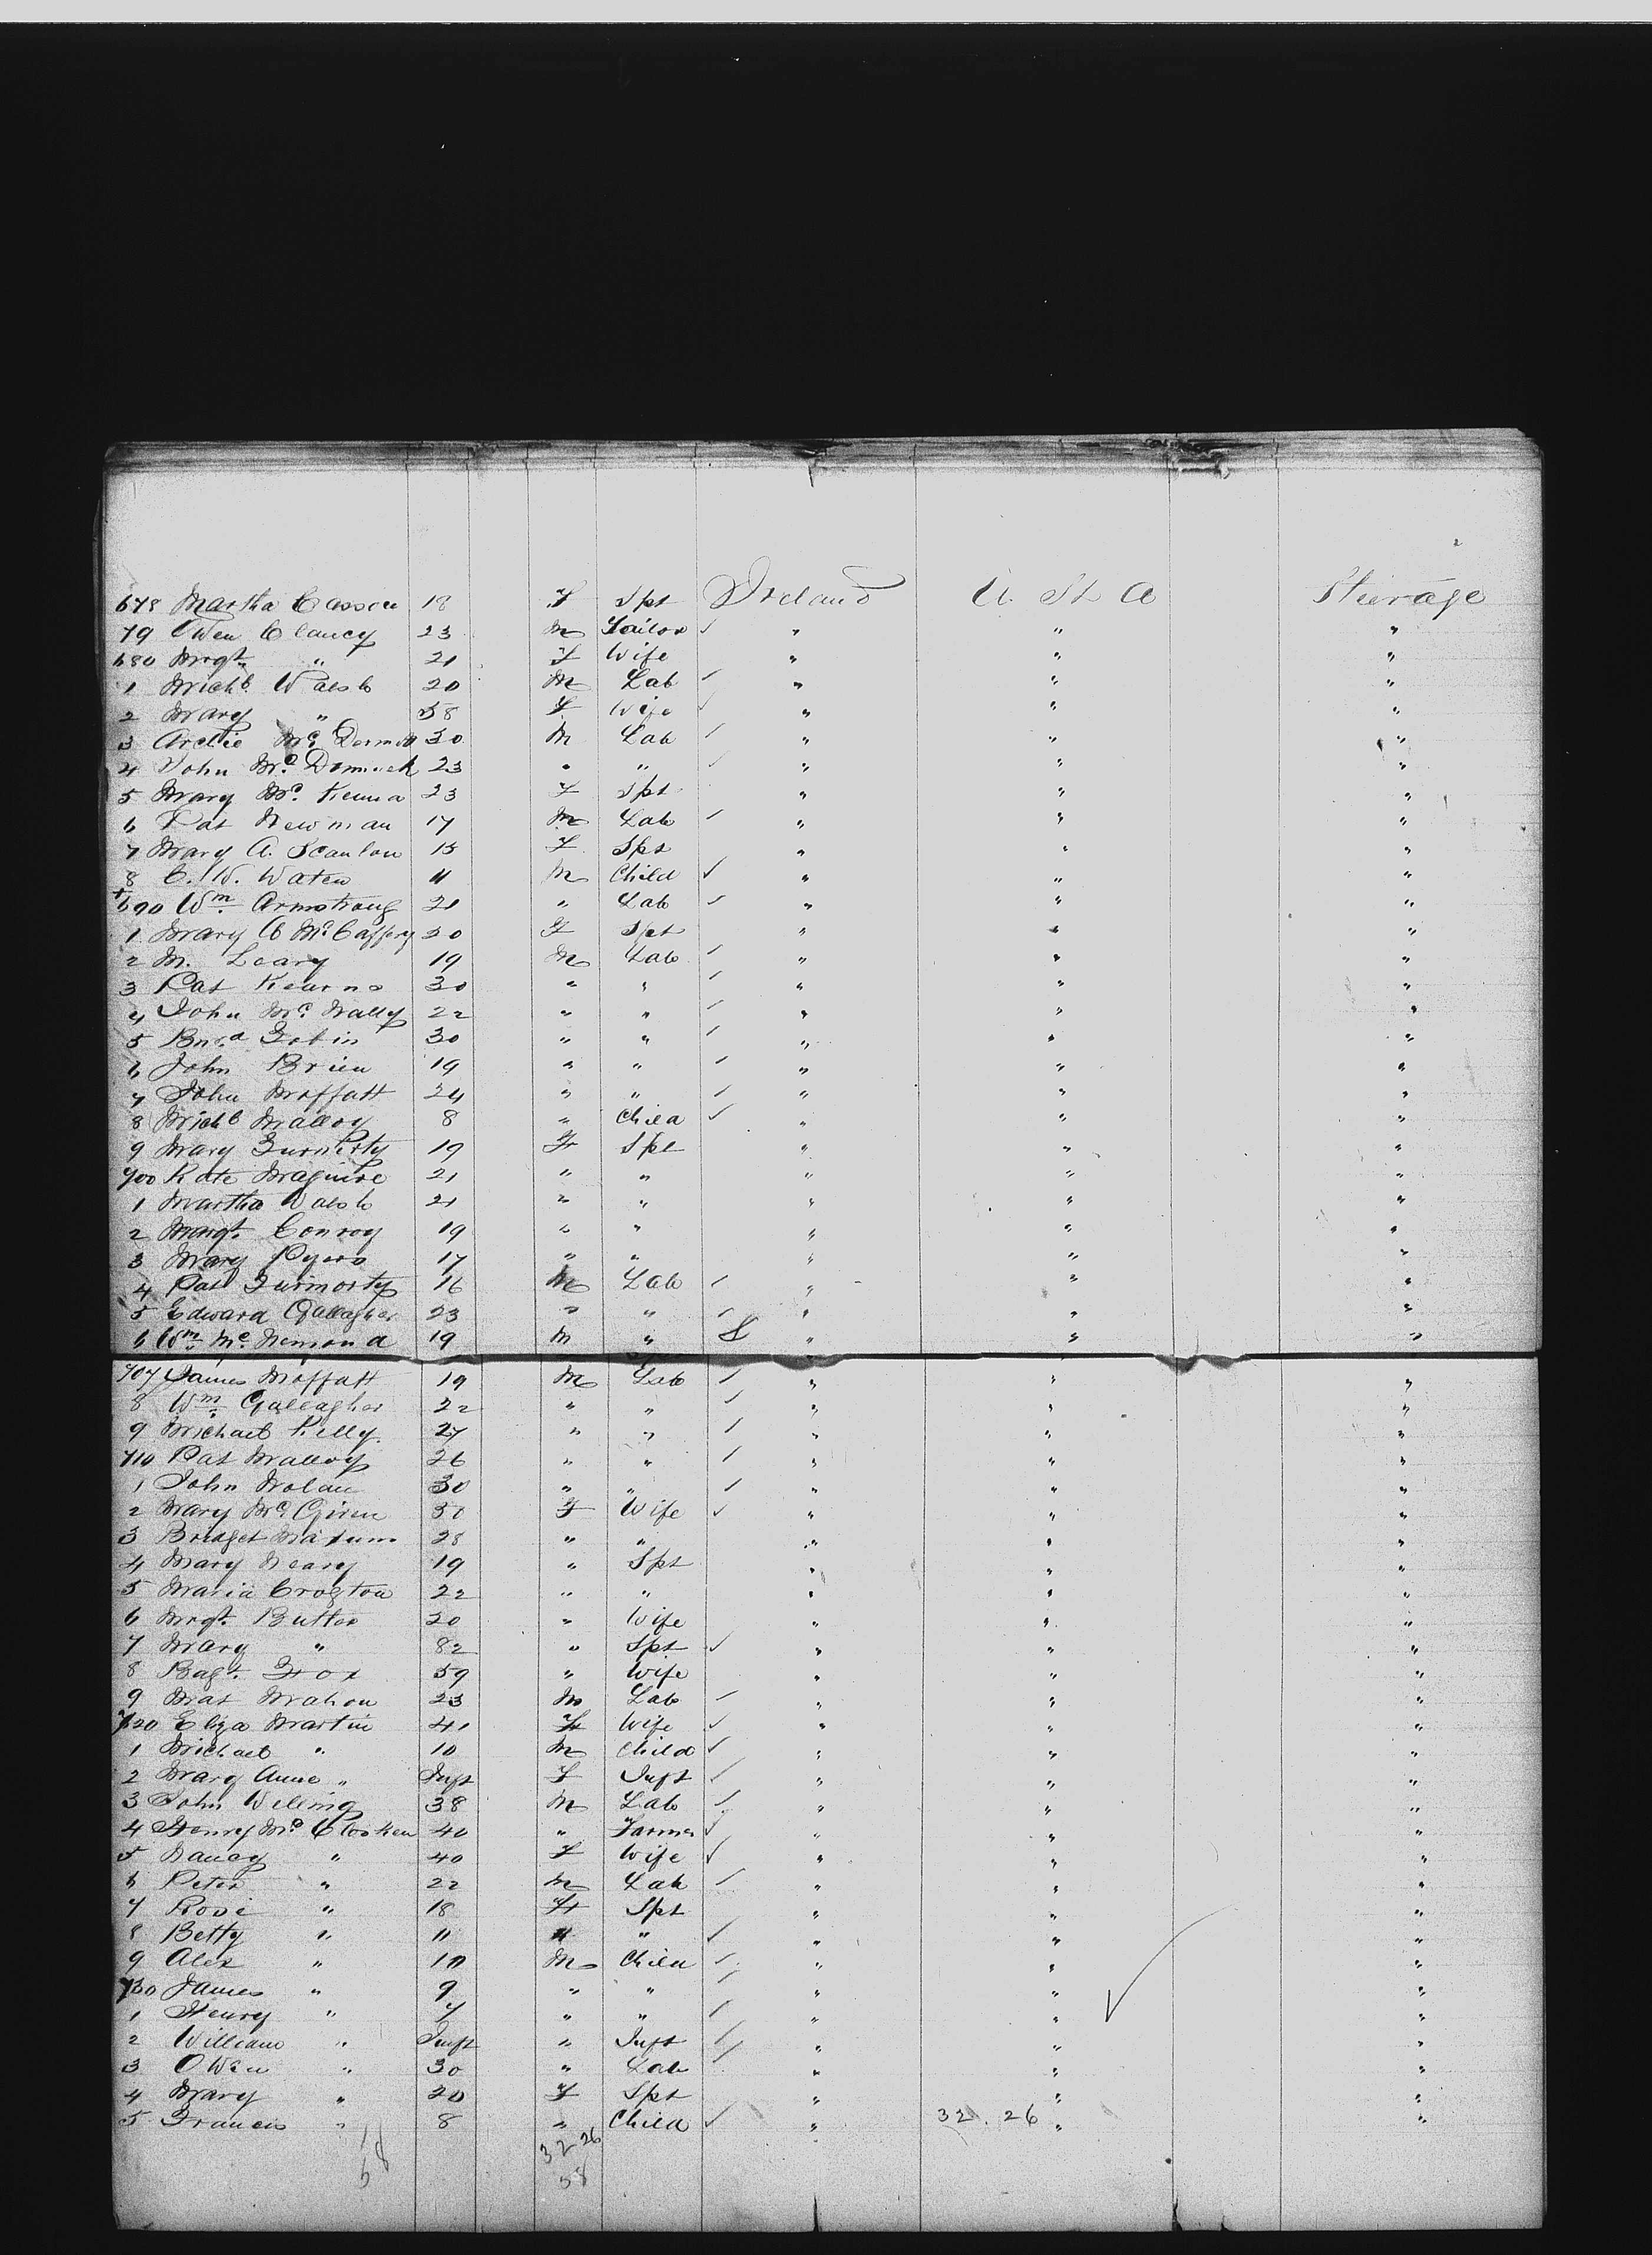 678 Martha Cassen 18 F Spt Ireland U. St. A Steerage
79 Owen Clancy 23 M Tailor ✓ " " "
680 Mrgt. " 21 F Wife " " "
1 Michl Walsh 20 M Lab " " "
2 Mary " 38 F Wife " " "
3 Archie Mc Dermott 30 M Lab " " "
4 John Mc 23 " " " " "
5 Mary Mc Kenna 23 F Spt " " "
6 Pat Newman 17 M Lab " " "
7 Mary A. Scanlon 15 F Spt " " "
8 C. W. Waten 11 M Child ✓ " " "
+690 Wm Armstrong 21 " Lab " " "
1 Mary A McCaffery 20 F Spt " " "
2 M. Leary 19 M Lab " " "
3 Pat Kearns 30 " " " " "
4 John Mc Nally 22 " " " " "
5 Bnrd Tobin 30 " " " " "
6 John Brien 19 " " " " "
7 John Moffatt 24 " " " " "
8 Michl Malloy 8 " Child ✓ " " "
9 Mary 19 F Spt " " "
700 Kate Maguire 21 " " " " "
1 Martha Walsh 21 " " " " "
2 Margt. Conroy 19 " " " " "
3 Mary Pyers 17 " " " " "
4 Pat 16 M Lab " " "
5 Edward Gallagher 23 " " " " "
6 Wm Mc 19 M " " " "
707 James Moffatt 19 M Lab " " "
8 Wm Gallagher 22 " " " " "
9 Michael Kelly 27 " " " " "
710 Pat Malloy 26 " " " " "
1 John Nolan 30 " " " " "
2 Mary Mc Given 30 F Wife ✓ " " "
3 Bridget 28 " " " " "
4 Mary Neary 19 " Spt " " "
5 Maria Crogton 22 " " " " "
6 Mrgt. Butler 20 " Wife " " "
7 Mary " 82 " Spt ✓ " " "
8 Bagt. Fox 59 " Wife " " "
9 Mat Mahon 23 M Lab " " "
720 Eliza Martin 41 F Wife ✓ " " "
1 Michael " 10 M Child ✓ " " "
2 Mary Anne " Inft F Inft " " "
3 John Welling 38 M Lab " " "
4 Henry Mc Closken 40 " Farmer ✓ " " "
5 Nancy " 40 F Wife ✓ " " "
6 Peter " 22 M Lab " " "
7 Rose " 18 F Spt " " "
8 Betty " 11 " " ✓ " " "
9 Alex " 10 M Child " " "
730 James " 9 " " " " "
1 Henry " 7 " " " " "
2 William " Inft " Inft " " "
3 Owen " 30 " Lab " " "
4 Mary " 20 F Spt " " "
5 Francis " 8 " Child ✓ " 32. 26 " "
58 32 26
58